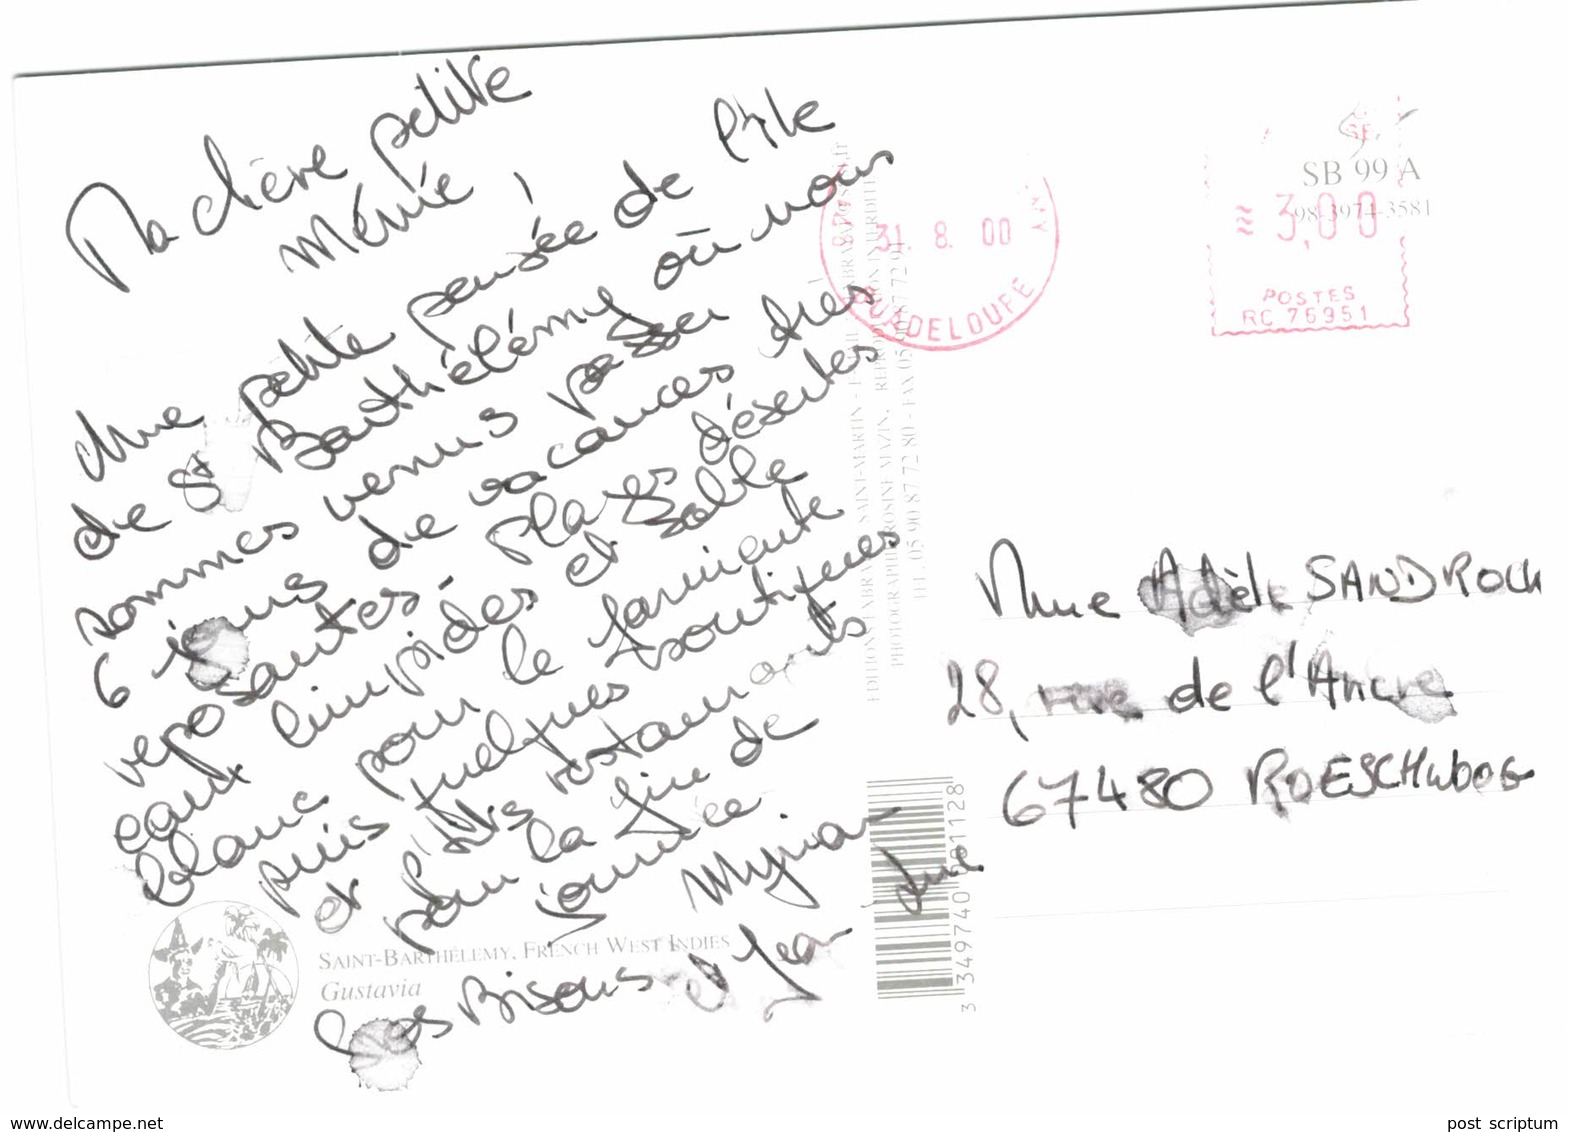 Ma chère petite
Mémie,
Une petite pensée de l'Ile
de St Barthélémy où nous
sommes venus passer
6 jours de vacances très
reposantes. Plages désertes
eaux limpides et sable
blanc pour le farniente
puis quelques boutiques
et petits restaurants
pour la fin de
journée
Gros Bisous Myriam
et Jean Luc
SAINT-BARTHÉLEMY, FRENCH WEST INDIES
Gustavia
31. 8. 00
GUADELOUPE
SB 99 A
98-3974-3581
3,00
POSTES
RC 75951
Mme Adèle SANDROCK
28, rue de l'Ancre
67480 ROESCHWOOG
PHOTOGRAPHIE ROSINE MAZIN.
TEL. 05 90 87 72 80 - FAX 05 90 87 72 91
delcampe.net
post scriptum